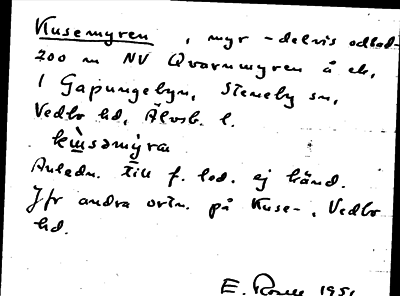 Kusemyren, myr - delvis odlad -
200 m NV Qvarnmyren å ek.
1 Gapungebyn, Steneby sn,
Vedbo hd, Älvsb. l.
kɯ̀sǝmy̌ra
Anledn. till f. led. ej känd.
Jfr andra ortn. på Kuse-, Vedbo
hd.
E. 1951